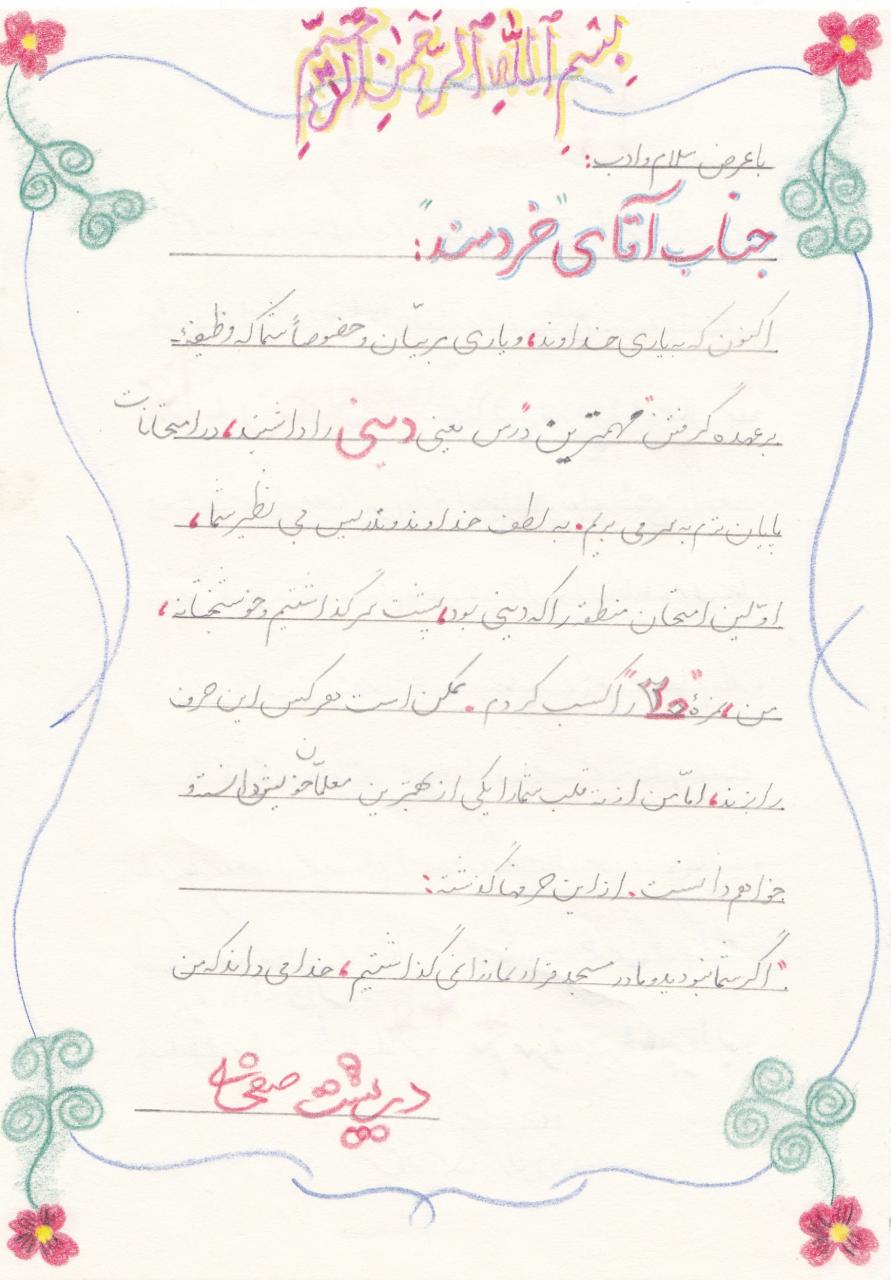 بِسْمِ اَللّٰهِ اَلْرَّحْمٰنِ اَلْرَّحيٖمِ
با عرض سلام و ادب:
جناب آقای "خردمند":
اکنون که به یاری خداوند، و یاری مربیّان و خصوصاً شما که وظیفهٔ
بر عهده گرفتن "مهمترین" درس یعنی دینی را داشتید، در امتحانات
پایان ترم به سر می بریم. به لطف خداوند و تدریس بی نظیر شما،
اوّلین امتحان منطقه را که دینی بود، پشت سر گذاشتیم و خوشبختانه،
من، نمرهٔ "۲۰" را کسب کردم. ممکن است هر کس این حرف
را بزند، امّا من از ته قلب شما را یکی از بهترین معلمّان خویش دانسته و
خواهم دانست. از این حرفها گذشته:
"اگر شما نبودید و ما در مسجد قرار نماز را نمی گذاشتیم، خدا می داند که من
در پشت صفحه